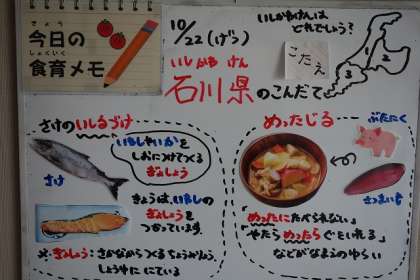 きょう
今日の
しょくいく
食育メモ
10/22(げつ)
いしかわ けん
石川県のこんだて
いしかわけんは
どれでしょう?
こたえ
1
2
3
さけのいしるづけ
いわしやいかを
しおにつけてつくる
ぎょしょう
さけ
きょうは、いわしの
ぎょしょうを
つかっています。
※ぎょしょう:さかなからつくるちょうみりょう。
しょうゆににている
めったじる
ぶたにく
さつまいも
「めったにたべられない」
「やたらめったらぐをいれる」
などがなまえのゆらい